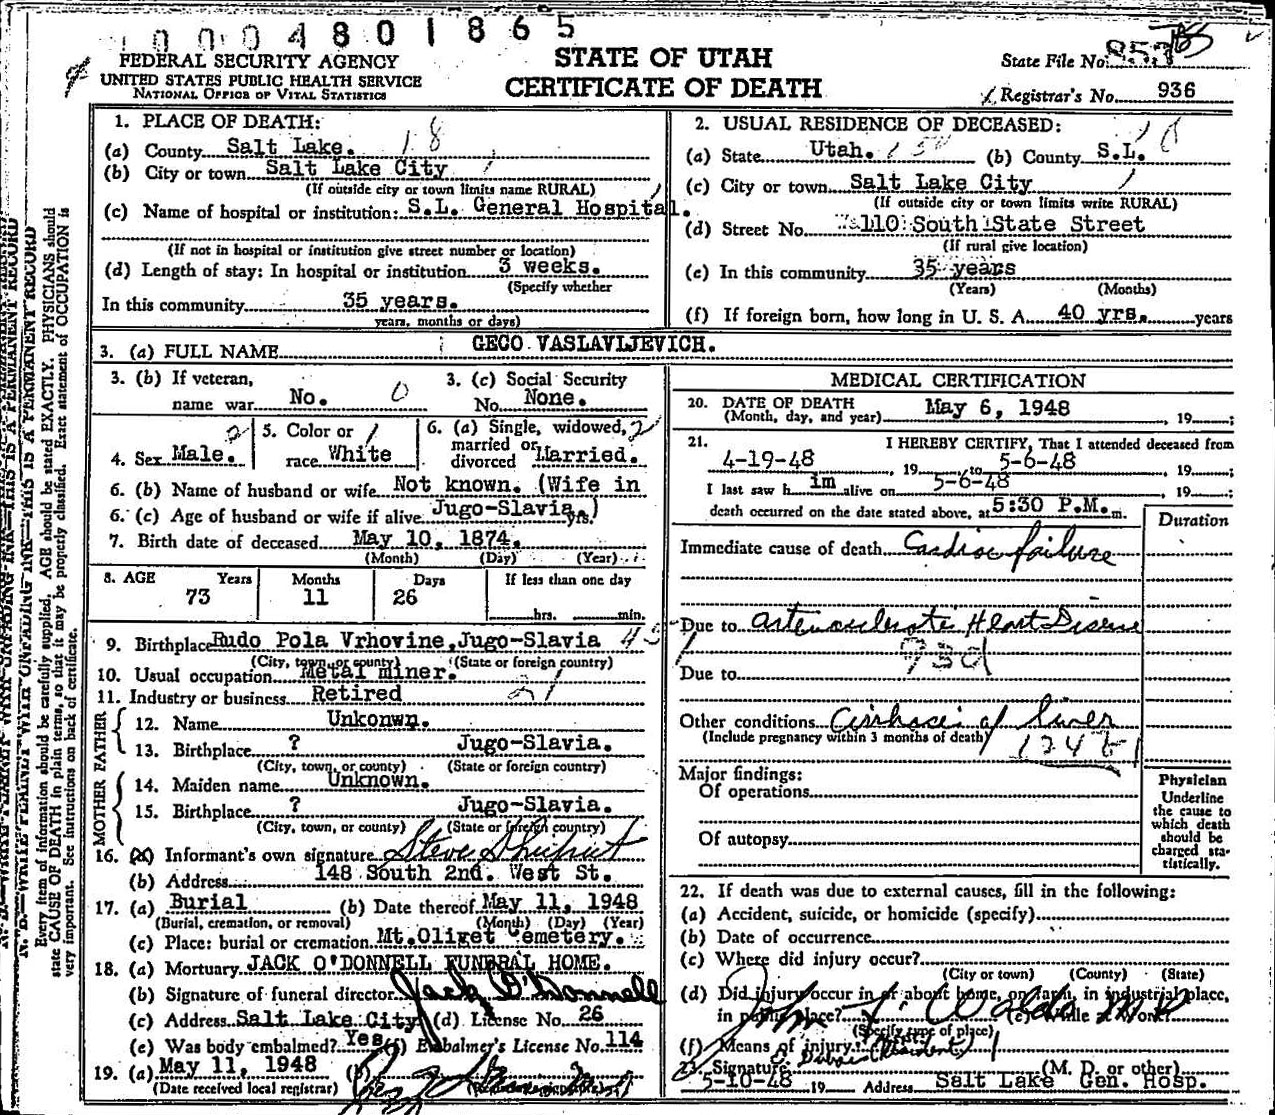 0004801865
FEDERAL SECURITY AGENCY
UNITED STATES PUBLIC HEALTH SERVICE
NATIONAL OFFICE OF VITAL STATISTICS
STATE OF UTAH
CERTIFICATE OF DEATH
State File No.
Registrar's No. 936
1. PLACE OF DEATH:
(a) County Salt Lake. 18
(b) City or town Salt Lake City
(If outside city or town limits name RURAL)
(c) Name of hospital or institution: S.L. General Hospital.
(If not in hospital or institution give street number or location)
(d) Length of stay: In hospital or institution 3 weeks.
(Specify whether
In this community 35 years.
years, months or days)
2. USUAL RESIDENCE OF DECEASED:
(a) State Utah. (b) County S.L.
(c) City or town Salt Lake City
(If outside city or town limits write RURAL)
(d) Street No. 110 South State Street
(If rural give location)
(e) In this community 35 years
(Years) (Months)
(f) If foreign born, how long in U. S. A. 40 yrs. years
3. (a) FULL NAME GECO VASLAVLJEVICH.
3. (b) If veteran,
name war No. 0
3. (c) Social Security
No. None.
4. Sex Male. 2
5. Color or
race White
6. (a) Single, widowed,
married or
divorced Married. 2
6. (b) Name of husband or wife Not known. (Wife in
6. (c) Age of husband or wife if alive Jugo-Slavia.) yrs.
7. Birth date of deceased May 10, 1874.
(Month) (Day) (Year)
8. AGE Years Months Days If less than one day
73 11 26
hrs. min.
9. Birthplace Rudo Pola Vrhovine, Jugo-Slavia
(City, town, or county) (State or foreign country)
10. Usual occupation Metal miner.
11. Industry or business Retired
FATHER
12. Name Unkonwn.
13. Birthplace ? Jugo-Slavia.
(City, town, or county) (State or foreign country)
MOTHER
14. Maiden name Unknown.
15. Birthplace ? Jugo-Slavia.
(City, town, or county) (State or foreign country)
16. (a) Informant's own signature Steve
(b) Address 148 South 2nd. West St.
17. (a) Burial (b) Date thereof May 11, 1948
(Burial, cremation, or removal) (Month) (Day) (Year)
(c) Place: burial or cremation Mt. Olivet Cemetery.
18. (a) Mortuary JACK O'DONNELL FUNERAL HOME.
(b) Signature of funeral director Jack O'Donnell
(c) Address Salt Lake City (d) License No. 26
(e) Was body embalmed? Yes (f) Embalmer's License No. 114
19. (a) May 11, 1948 (b)
(Date received local registrar)
MEDICAL CERTIFICATION
20. DATE OF DEATH May 6, 1948
(Month, day, and year) , 19 ;
21. I HEREBY CERTIFY, That I attended deceased from
4-19-48 , 19 to 5-6-48 , 19 ;
I last saw h im alive on 5-6-48 , 19 ;
death occurred on the date stated above, at 5:30 P.M. m.
Duration
Immediate cause of death Cardiac failure
Due to Arteriosclerotic Heart Disease
93d
Due to
Other conditions Cirrhosis of liver
(Include pregnancy within 3 months of death) 124 b
Major findings:
Of operations
Of autopsy
Physician
Underline
the cause to
which death
should be
charged sta-
tistically.
22. If death was due to external causes, fill in the following:
(a) Accident, suicide, or homicide (specify)
(b) Date of occurrence
(c) Where did injury occur?
(City or town) (County) (State)
(d) Did injury occur in or about home, on farm, in industrial place,
in public place? (e) While at work?
(Specify type of place)
(f) Means of injury?
23. Signature John F. Waldo M.D. (M. D. or other)
5-10-48 19 Address Salt Lake Gen. Hosp.
N. B.—WRITE PLAINLY WITH UNFADING INK—THIS IS A PERMANENT RECORD
Every item of information should be carefully supplied. AGE should be stated EXACTLY. PHYSICIANS should
state CAUSE OF DEATH in plain terms, so that it may be properly classified. Exact statement of OCCUPATION is
very important. See instructions on back of certificate.